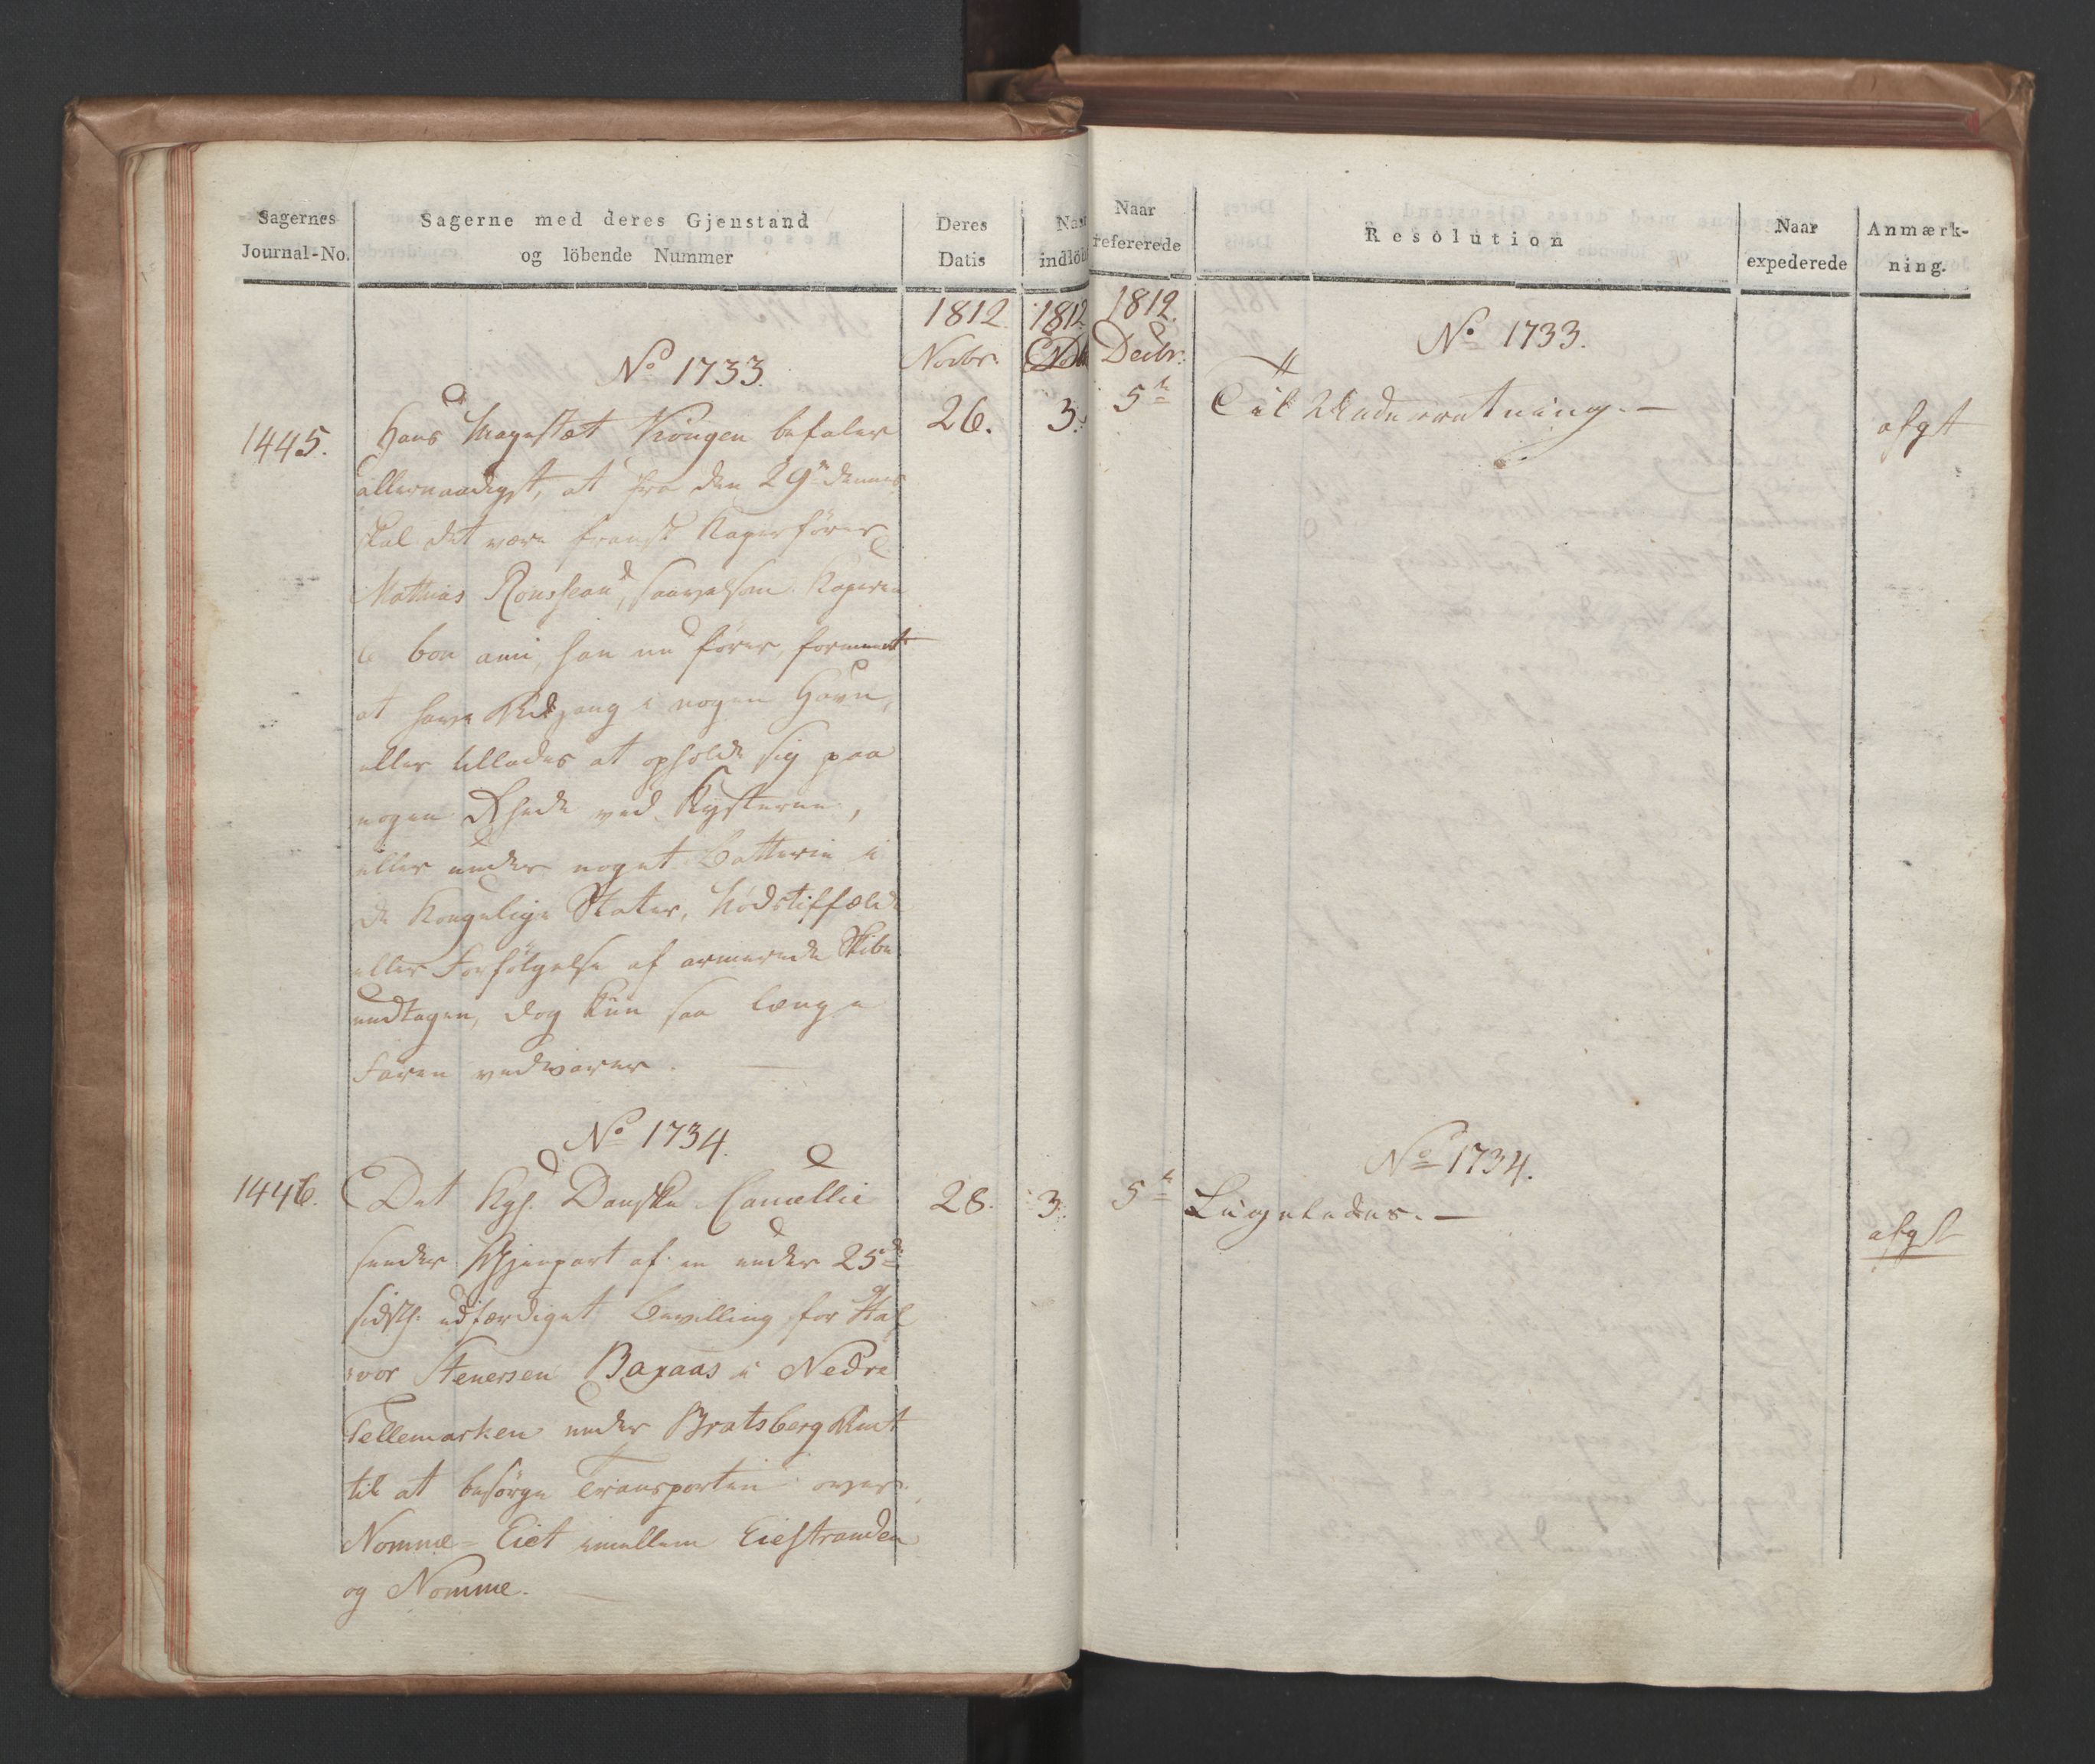 Sagernes
Journal-No.
Sagerne med deres Gjenstand
og löbende Nummer
Deres
Datis
Naar
indlöb
1812.
Novbr.
1812
No 1733.
1445.
Hans Mayestæt Kongen befaler
26.
3.
allernaadigst, at fra den 29de dennes
skal det være fransk Kaperfører
Mathias Rousseau, saavelsom Kaperen
le bon ami, han nu fører, formeent
at have Adgang i nogen Havn,
eller tillades at opholde sig paa
nogen Rhede ved Kysterne,
eller under noget Batterie i
de Kongelige Stater, Nødstilfælde
eller Forfølgelse af armerede Skibe
undtagen, dog kun saa længe
Faren vedvarer. —
No 1734.
1446.
Det Kgl. Danske Cancellie
28.
3.
sender Gjenpart af en under 25de
sidstl. udfærdiget Bevilling for Hal
vor Stenersen Bagaas i Nedre
Tellemarken under Bratsberg Amt
til at besørge Transporten over
Nomme-Eiet imellem Eiestranden
og Nomme. —
Naar
refererede
Resolution
Naar
expederede
Anmærk-
ning.
1812.
Decbr.
No 1733.
5te
Til Underretning. —
afgt
No 1734.
5te
Ligeledes. —
afgt